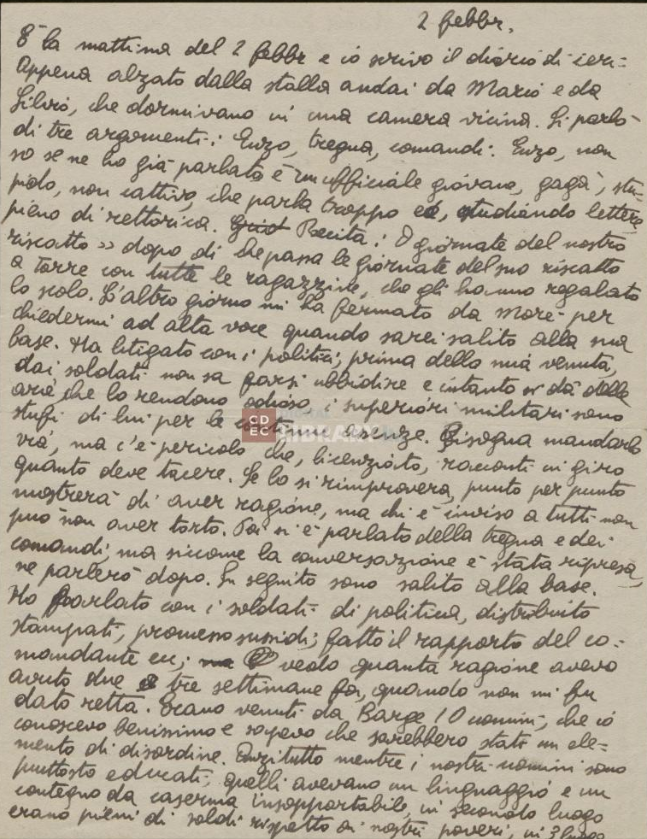 2 febbr.
È la mattina del 2 febbr e io scrivo il diario di ieri.
Appena alzato dalla stalla andai da Mario e da
Silvio, che dormivano in una camera vicina. Si parlò
di tre argomenti: Enzo, tregua, comandi. Enzo, non
so se ne ho già parlato è un ufficiale giovane, gagà, stu-
pido, non cattivo, che parla troppo e, studiando lettere
pieno di rettorica. Recita: O giornate del nostro
riscatto » dopo di che passa le giornate del suo riscatto
a Torre con tutte le ragazzine, che gli hanno regalato
lo scolo. L'altro giorno mi ha fermato da More per
chiedermi ad alta voce quando sarei salito alla sua
base. Ha litigato con i politici, prima della mia venuta,
dai soldati non sa farsi ubbidire e intanto si dà delle
arie che lo rendono odioso, i superiori militari sono
stufi di lui per le continue assenze. Bisogna mandarlo
via, ma c'è pericolo che, licenziato, racconti in giro
quanto deve tacere. Se lo si rimprovera, punto per punto
mostrerà di aver ragione, ma chi è inviso a tutti non
può non aver torto. Poi si è parlato della tregua e dei
comandi, ma siccome la conversazione è stata ripresa,
ne parlerò dopo. In seguito sono salito alla base.
Ho parlato con i soldati di politica, distribuito
stampati, promesso sussidi, fatto il rapporto del co-
mandante ecc; vedo quanta ragione avevo
avuto due o tre settimane fa, quando non mi fu
dato retta. Erano venuti da Barge 10 uomini, che io
conoscevo benissimo e sapevo che sarebbero stati un ele-
mento di disordine. Anzitutto mentre i nostri uomini sono
piuttosto educati, quelli avevano un linguaggio e un
contegno da caserma insopportabile, in secondo luogo
erano pieni di soldi rispetto ai nostri poveri, in 3 luogo
CD
EC